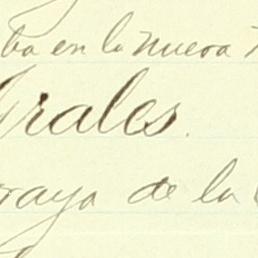 ba en la nueva
rales.
raya de la